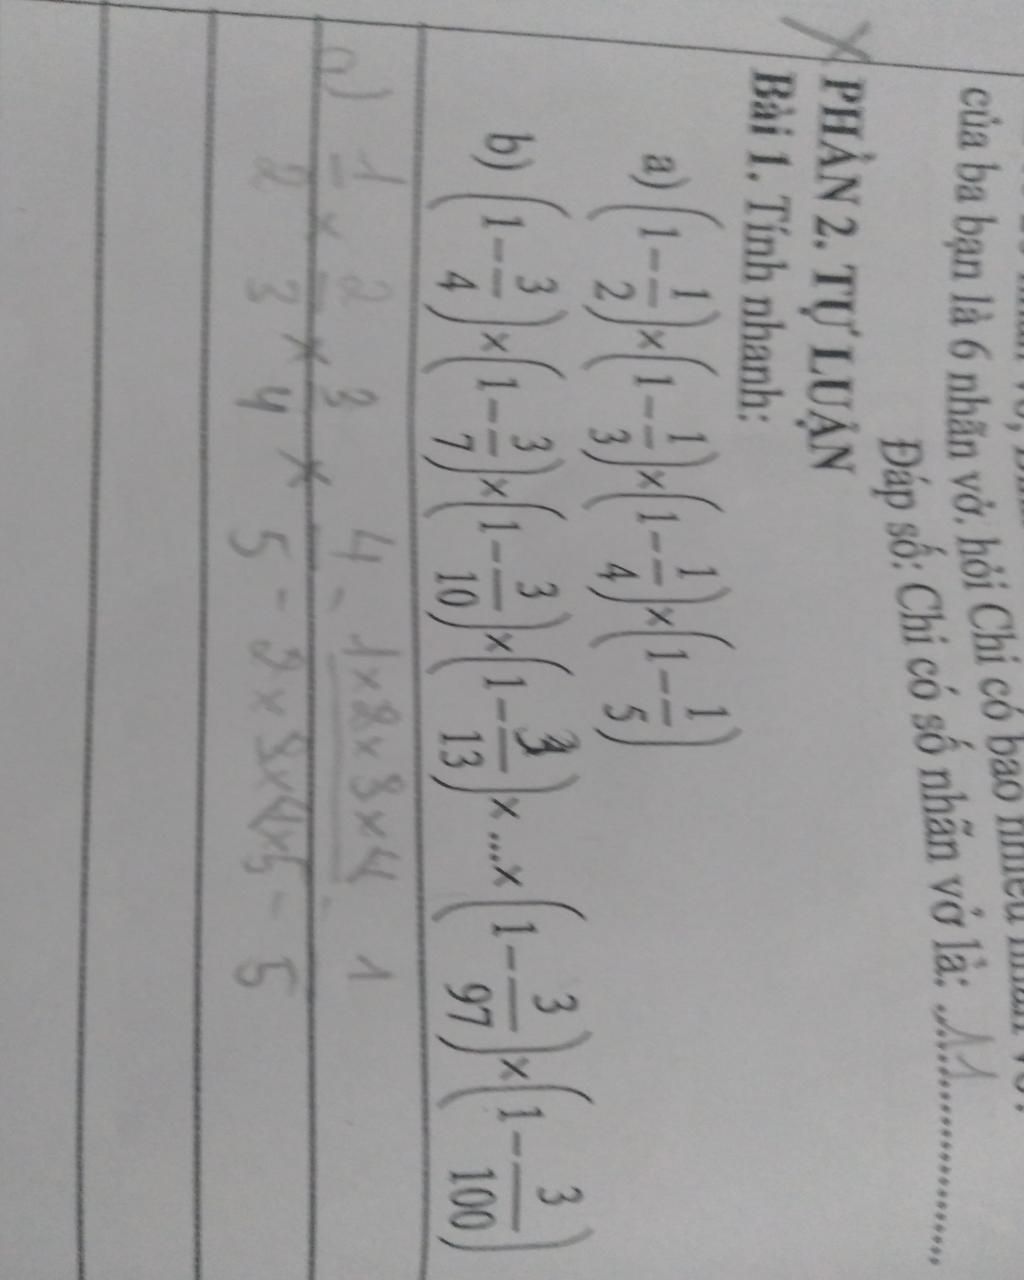 của ba bạn là 6 nhãn vở. hỏi Chi có bao nhiêu nhãn vở?
Đáp số: Chi có số nhãn vở là: 11
PHẦN 2. TỰ LUẬN
Bài 1. Tính nhanh:
a) (1 - 1/2) × (1 - 1/3) × (1 - 1/4) × (1 - 1/5)
b) (1 - 3/4) × (1 - 3/7) × (1 - 3/10) × (1 - 3/13) × ... × (1 - 3/97) × (1 - 3/100)
a) 1/2 × 2/3 × 3/4 × 4/5 = (1 × 2 × 3 × 4)/(2 × 3 × 4 × 5) = 1/5